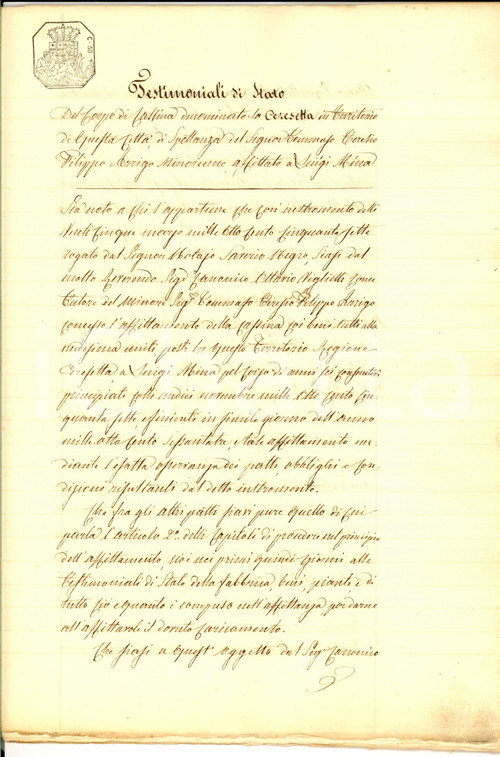 C. 50
Testimoniali di Stato
Del Corpo di Cassina denominato la Ceresetta in Territorio
di questa Città, di Spettanza del Signor Tommaso
Filippo Arrigo Minorenne, affittato a Luigi Mina
Sia noto a chi l'appartiene che con instromento delli
venti cinque marzo mille otto cento cinquanta sette
rogato dal Signor Notajo Saverio Negro, siasi dal
molto Reverendo Sigr Canonico Vittorio Viglietti come
Tutore del Minore Sigr Tommaso Filippo Arrigo
concesso l'affittamento della Cassina coi beni tutti alla
medesima uniti posti in questo Territorio Regione
Ceresetta a Luigi Mina pel corso di anni sei
principiati colli undici novembre mille otto cento cin
quanta sette, e finienti in simile giorno dell'anno
mille otto cento sessantatre, e tale affittamento me
diante l'esatta osservanza dei patti, obblighi e con
dizioni risultanti dal detto instromento.
Che fra gli altri patti siavi pure quello di cui
parla l'articolo 2o delli Capitoli di procedere nel principio
dell'affittamento, nei primi quindici giorni alle
Testimoniali di Stato della fabbrica, beni, piante, e di
tutto ciò e quanto è compreso nell'affittanza,
all'affittavole il dovuto caricamento.
Che siasi a quest'oggetto dal Sigr Canonico